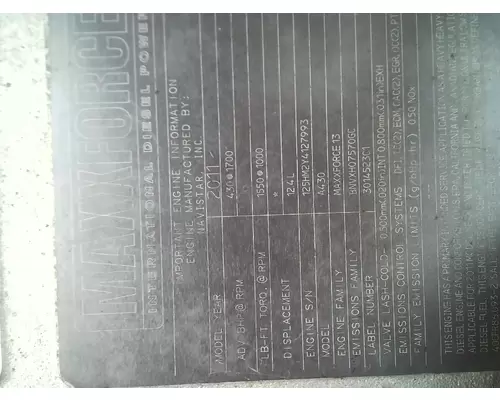 MAXXFORCE
INTERNATIONAL DIESEL POWER
IMPORTANT ENGINE INFORMATION
ENGINE MANUFACTURED BY:
NAVISTAR, INC.
MODEL YEAR 2011
ADV. BHP @ RPM 430@1700
LB-FT. TORQ. @ RPM 1550@1000
*
DISPLACEMENT 12.4L
ENGINE S/N 125HM2Y4127993
MODEL A430
ENGINE FAMILY MAXXFORCE 13
EMISSIONS FAMILY BNVXH07570GC
LABEL NUMBER 3014523C1
VALVE LASH-COLD- 0.500mm(.020in)INT 0.800mm(.031in)EXH
EMISSIONS CONTROL SYSTEMS DFI,TC(2),ECM,CAC(2),EGR,OC(2),PT
FAMILY EMISSION LIMITS (g/bhp hr) 0.50 NOx
THIS ENGINE HAS A PRIMARY
DIESEL ENGINE
APPLICABLE FOR
DIESEL FUEL.